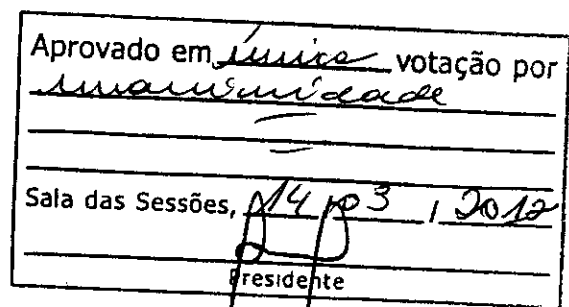 Aprovado em única votação por
unanimidade
Sala das Sessões, 14 / 03 / 2012
Presidente